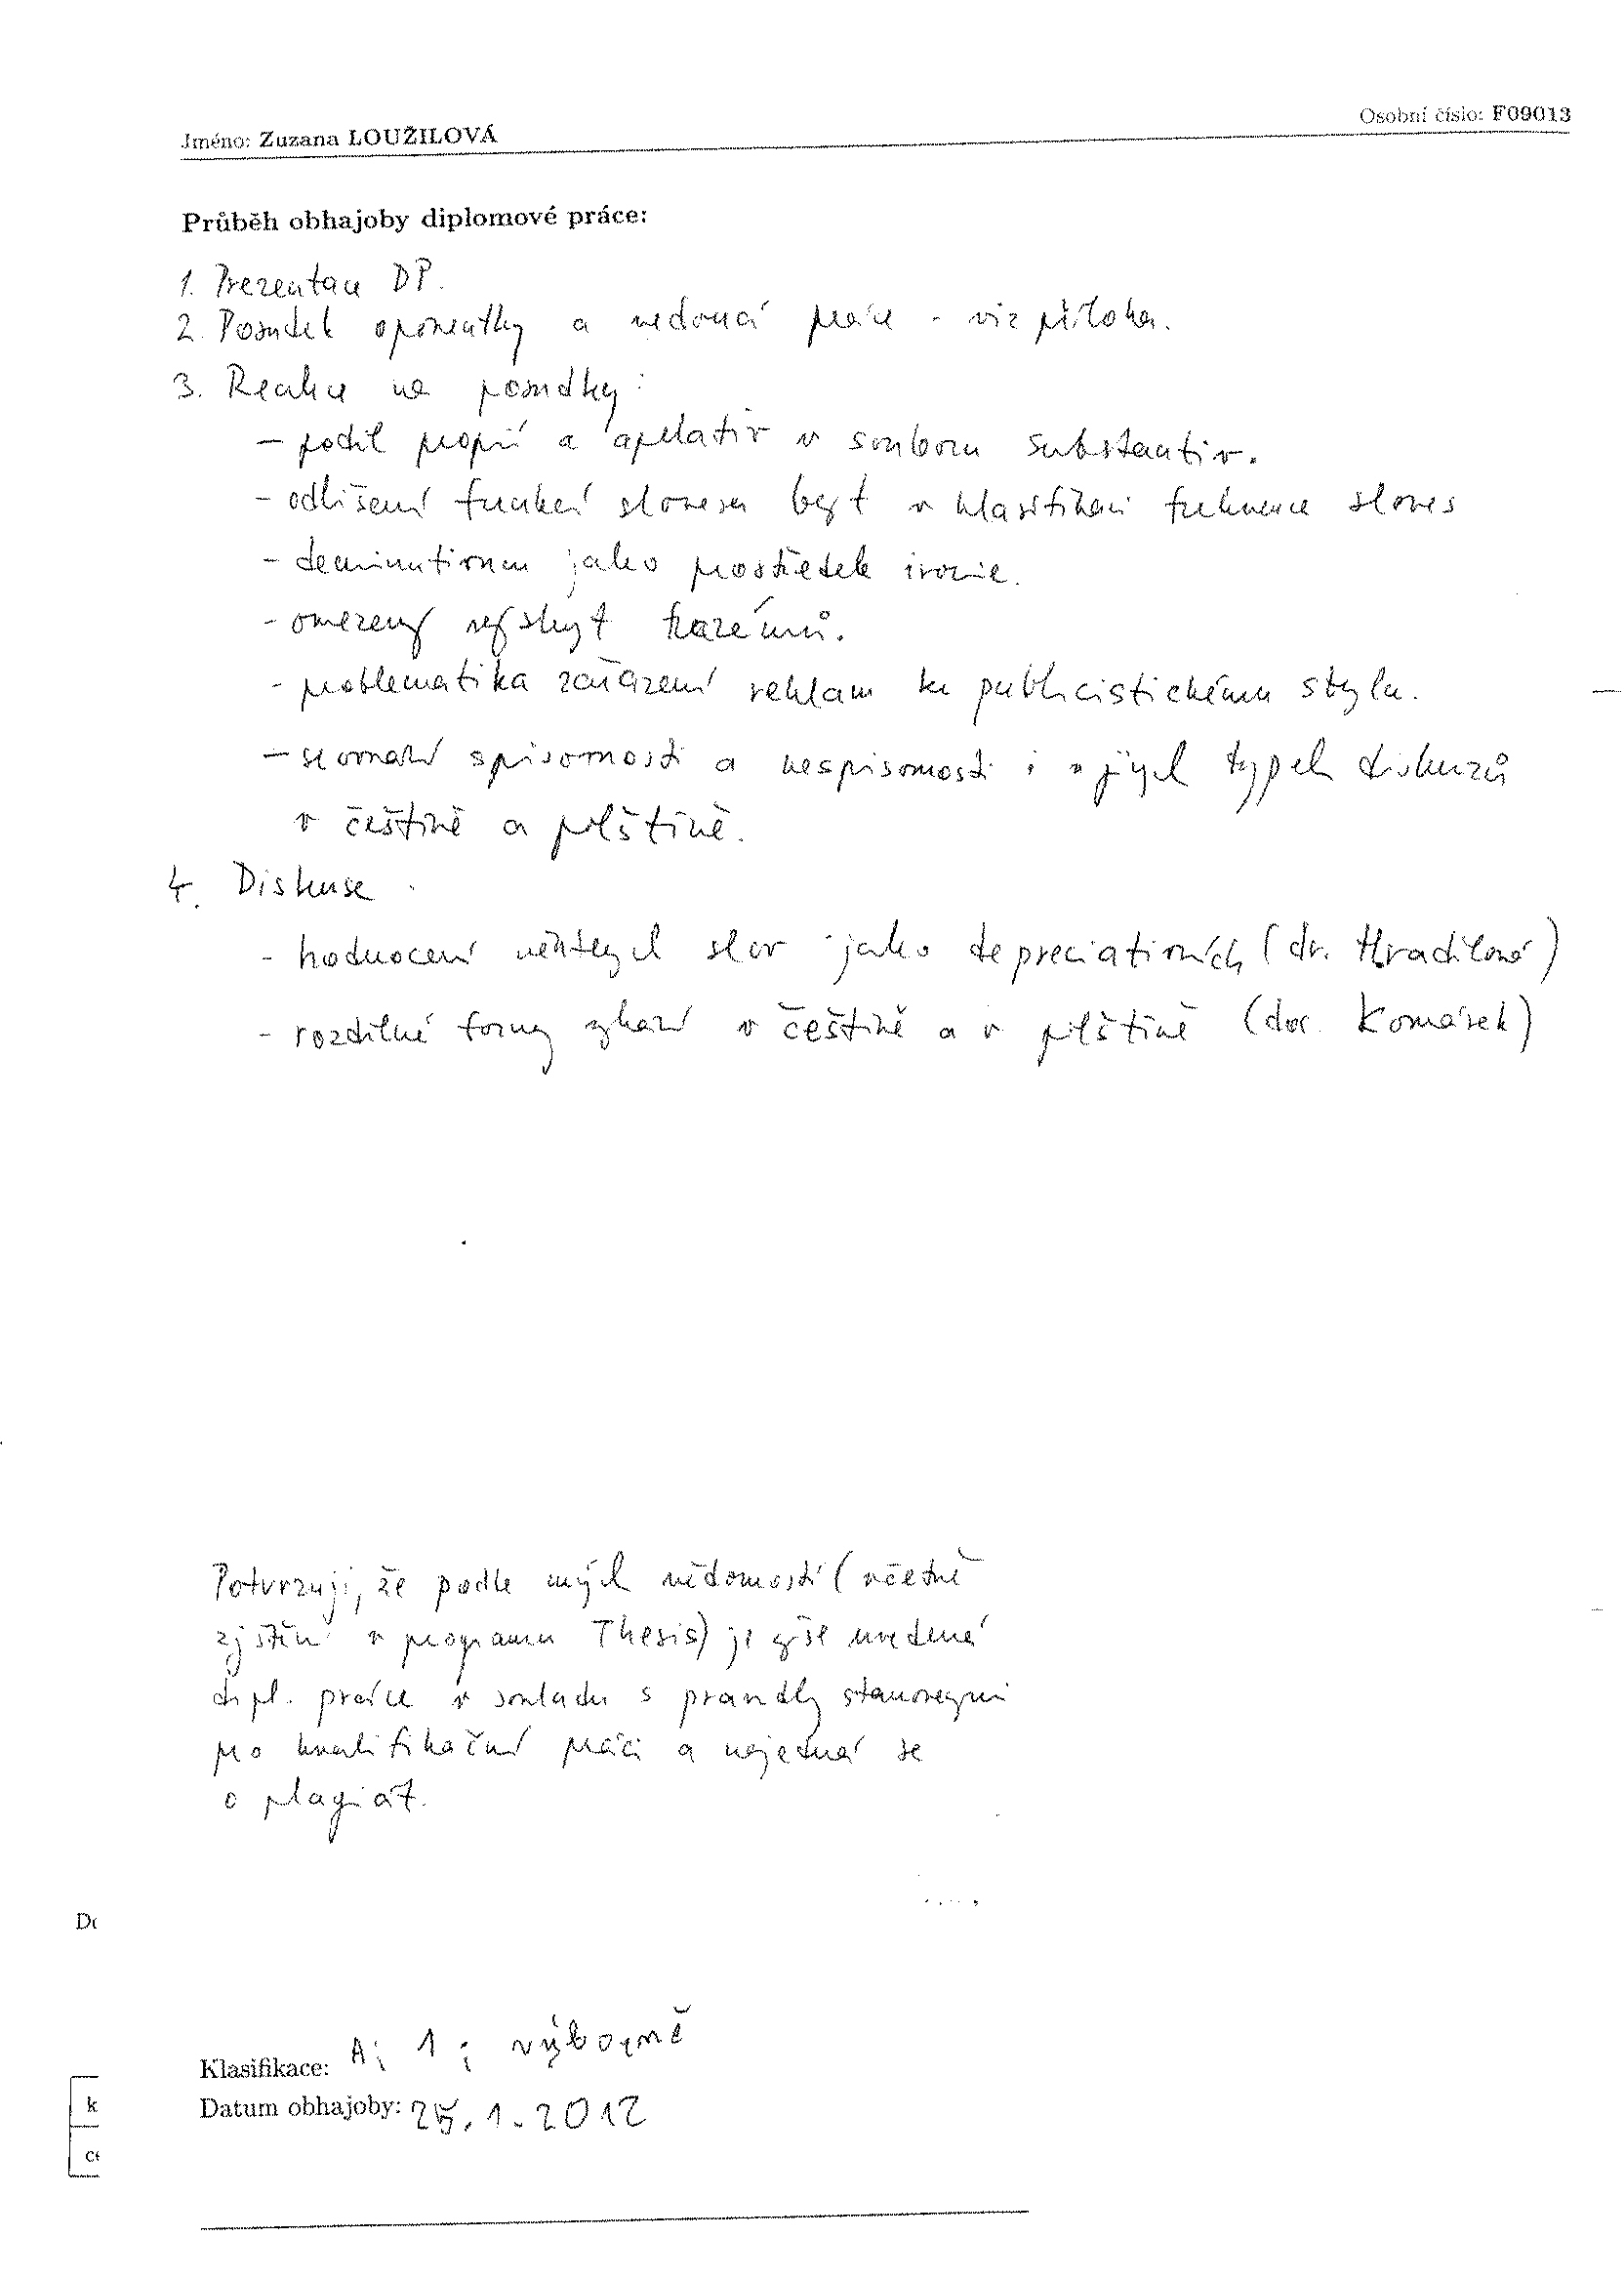 Jméno: Zuzana LOUŽILOVÁ
Osobní číslo: F09013
Průběh obhajoby diplomové práce:
1. Prezentace DP.
2. Posudek oponentky a vedoucí práce - viz příloha.
3. Reakce na posudky:
– podíl proprií a apelativ v souboru substantiv.
- odlišení funkcí slovesa být v klasifikaci frekvence sloves
- deminutivum jako prostředek ironie.
- omezený výskyt frazémů.
- problematika zařazení reklam ke publicistickému stylu.
– srovnání spisovnosti a nespisovnosti i v jiných typech diskurzů
v češtině a polštině.
4. Diskuse
- hodnocení některých slov jako depreciativních (dr. Hradilová)
- rozdílné formy vykání v češtině a v polštině (doc. Komárek)
Potvrzuji, že podle mých vědomostí (včetně
zjištění v programu Thesis) je výše uvedená
dipl. práce v souladu s pravidly stanovenými
pro kvalifikační práci a nejedná se
o plagiát.
Do
Klasifikace: A; 1; výborně
k
Datum obhajoby: 25. 1. 2012